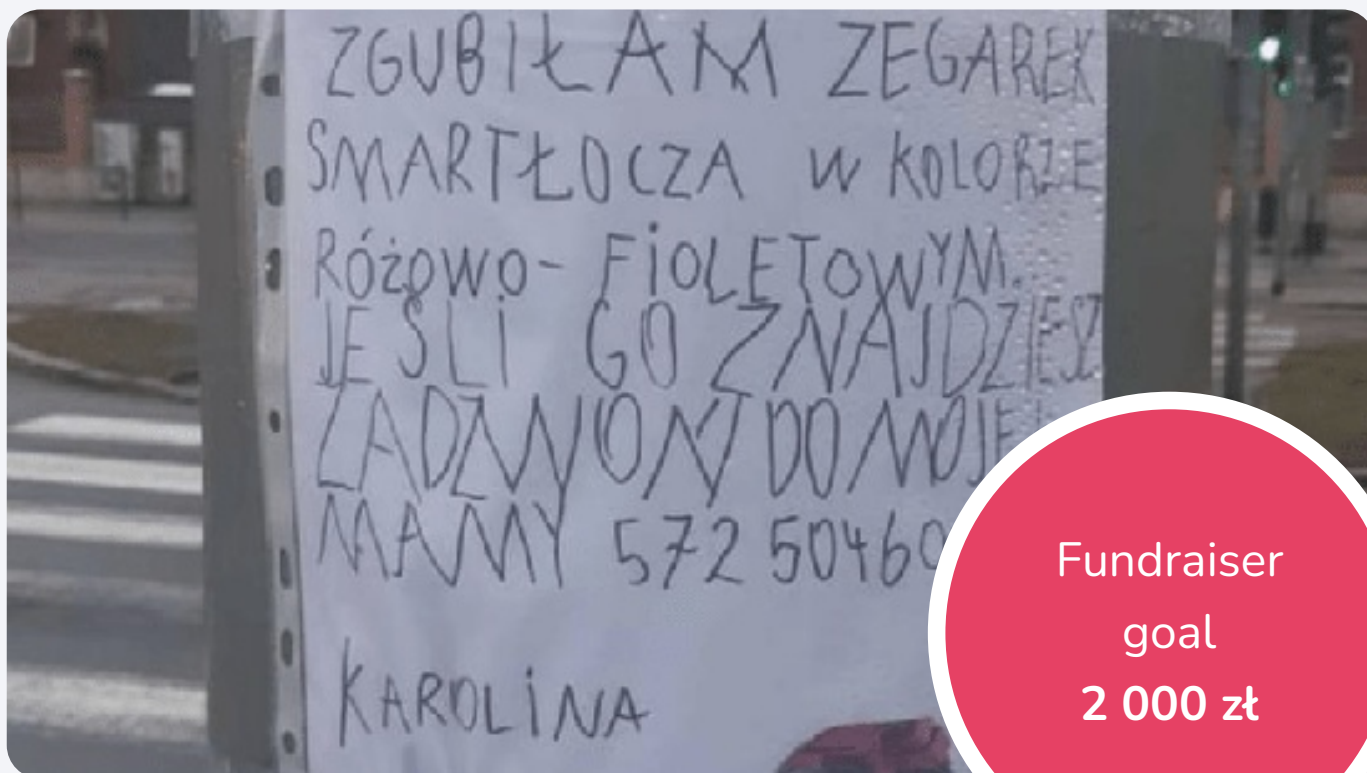 ZGUBIŁAM ZEGAREK
SMARTŁOCZA W KOLORZE
RÓŻOWO- FIOLETOWYM.
JEŚLI GO ZNAJDZIESZ
ZADZWOŃ DO MOJEJ
MAMY 572 50460
KAROLINA
Fundraiser
goal
2 000 zł